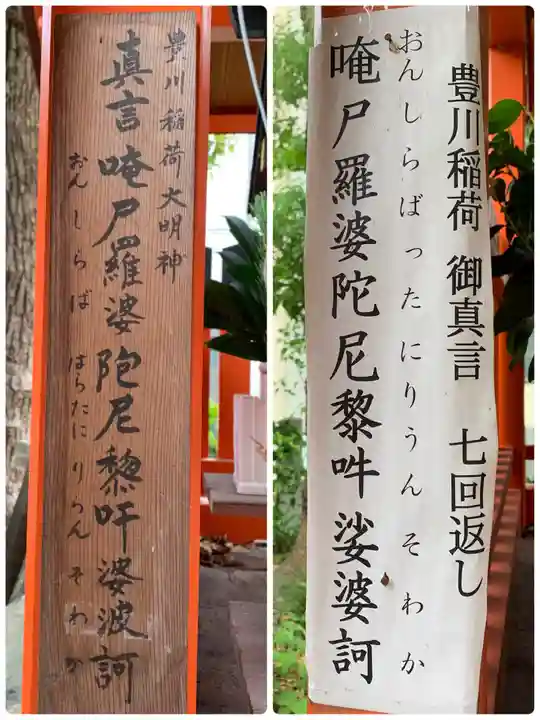 豊川稲荷大明神
真言 唵尸羅婆陀尼黎吽娑波訶
おんしらば はらたにりうんそわか
豊川稲荷 御真言 七回返し
おんしらばったにりうんそわか
唵尸羅婆陀尼黎吽娑婆訶